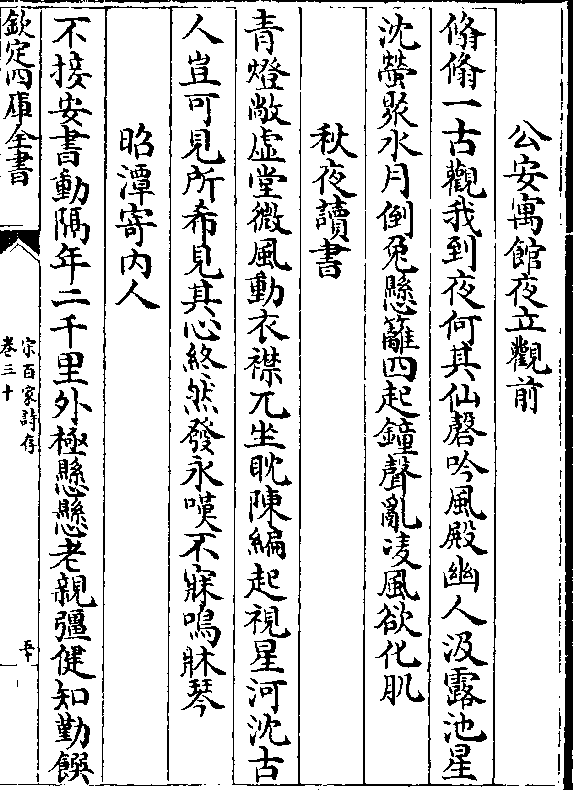 公安寓館夜立觀前
翛翛一古觀我到夜何其仙磬吟風殿幽人汲露池星
沈螢聚水月倒兔懸籬四起鐘聲亂凌風欲化肌
秋夜讀書
青燈敞虛堂微風動衣襟兀坐耽陳編起視星河沈古
人豈可見所希見其心終然發永嘆不寐鳴牀琴
昭潭寄內人
不接安書動隔年二千里外極懸懸老親彊健知勤饌
欽定四庫全書
宋百家詩存
卷三十